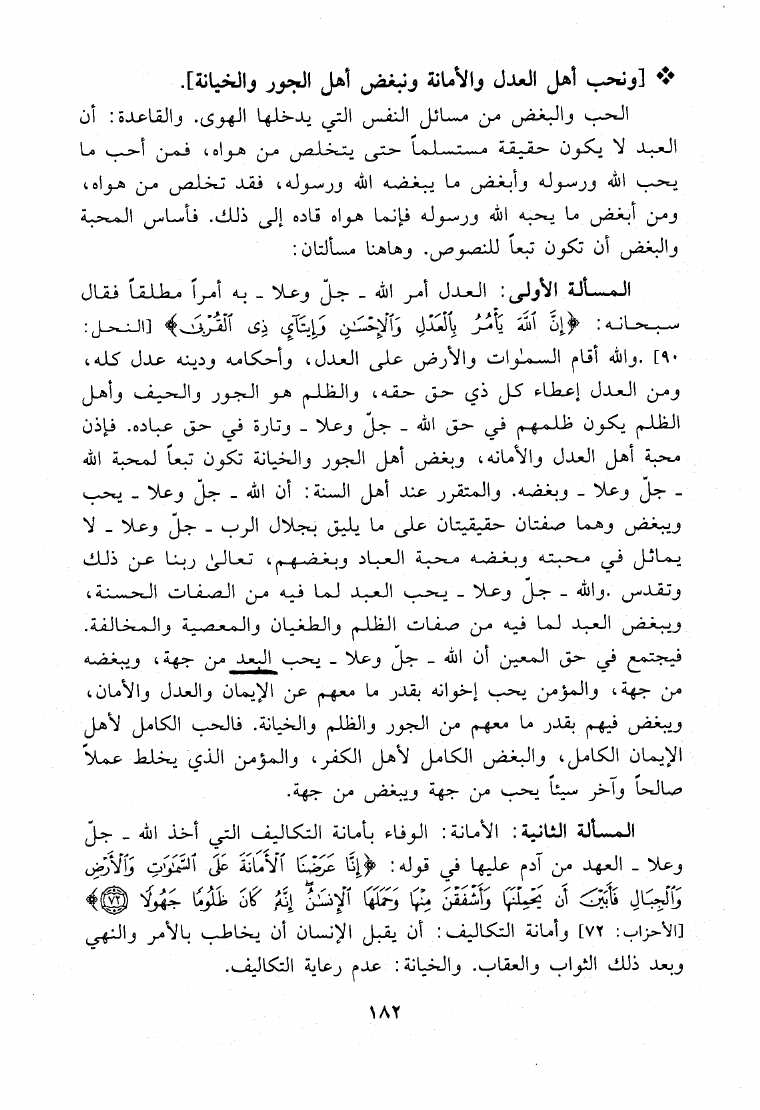 ❖ [ونحب أهل العدل والأمانة ونبغض أهل الجور والخيانة].
الحب والبغض من مسائل النفس التي يدخلها الهوى. والقاعدة: أن
العبد لا يكون حقيقة مستسلماً حتى يتخلص من هواه، فمن أحب ما
يحب الله ورسوله وأبغض ما يبغضه الله ورسوله، فقد تخلص من هواه،
ومن أبغض ما يحبه الله ورسوله فإنما هواه قاده إلى ذلك. فأساس المحبة
والبغض أن تكون تبعاً للنصوص. وهاهنا مسألتان:
المسألة الأولى: العدل أمر الله ـ جلّ وعلا ـ به أمراً مطلقاً فقال
سبحانه: ﴿إِنَّ ٱللَّهَ يَأْمُرُ بِٱلْعَدْلِ وَٱلْإِحْسَٰنِ وَإِيتَآئِ ذِى ٱلْقُرْبَىٰ﴾ [النحل:
٩٠]. والله أقام السمٰوات والأرض على العدل، وأحكامه ودينه عدل كله،
ومن العدل إعطاء كل ذي حق حقه، والظلم هو الجور والحيف وأهل
الظلم يكون ظلمهم في حق الله ـ جلّ وعلا ـ وتارة في حق عباده. فإذن
محبة أهل العدل والأمانه، وبغض أهل الجور والخيانة تكون تبعاً لمحبة الله
ـ جلّ وعلا ـ وبغضه. والمتقرر عند أهل السنة: أن الله ـ جلّ وعلا ـ يحب
ويبغض وهما صفتان حقيقيتان على ما يليق بجلال الرب ـ جلّ وعلا ـ لا
يماثل في محبته وبغضه محبة العباد وبغضهم، تعالىٰ ربنا عن ذلك
وتقدس. والله ـ جلّ وعلا ـ يحب العبد لما فيه من الصفات الحسنة،
ويبغض العبد لما فيه من صفات الظلم والطغيان والمعصية والمخالفة.
فيجتمع في حق المعين أن الله ـ جلّ وعلا ـ يحب البعد من جهة، ويبغضه
من جهة، والمؤمن يحب إخوانه بقدر ما معهم عن الإيمان والعدل والأمان،
ويبغض فيهم بقدر ما معهم من الجور والظلم والخيانة. فالحب الكامل لأهل
الإيمان الكامل، والبغض الكامل لأهل الكفر، والمؤمن الذي يخلط عملاً
صالحاً وآخر سيئاً يحب من جهة ويبغض من جهة.
المسألة الثانية: الأمانة: الوفاء بأمانة التكاليف التي أخذ الله ـ جلّ
وعلا ـ العهد من آدم عليها في قوله: ﴿إِنَّا عَرَضْنَا ٱلْأَمَانَةَ عَلَى ٱلسَّمَٰوَٰتِ وَٱلْأَرْضِ
وَٱلْجِبَالِ فَأَبَيْنَ أَن يَحْمِلْنَهَا وَأَشْفَقْنَ مِنْهَا وَحَمَلَهَا ٱلْإِنسَٰنُ ۖ إِنَّهُۥ كَانَ ظَلُومًا جَهُولًا ﴿٧٢﴾﴾
[الأحزاب: ٧٢] وأمانة التكاليف: أن يقبل الإنسان أن يخاطب بالأمر والنهي
وبعد ذلك الثواب والعقاب. والخيانة: عدم رعاية التكاليف.
١٨٢